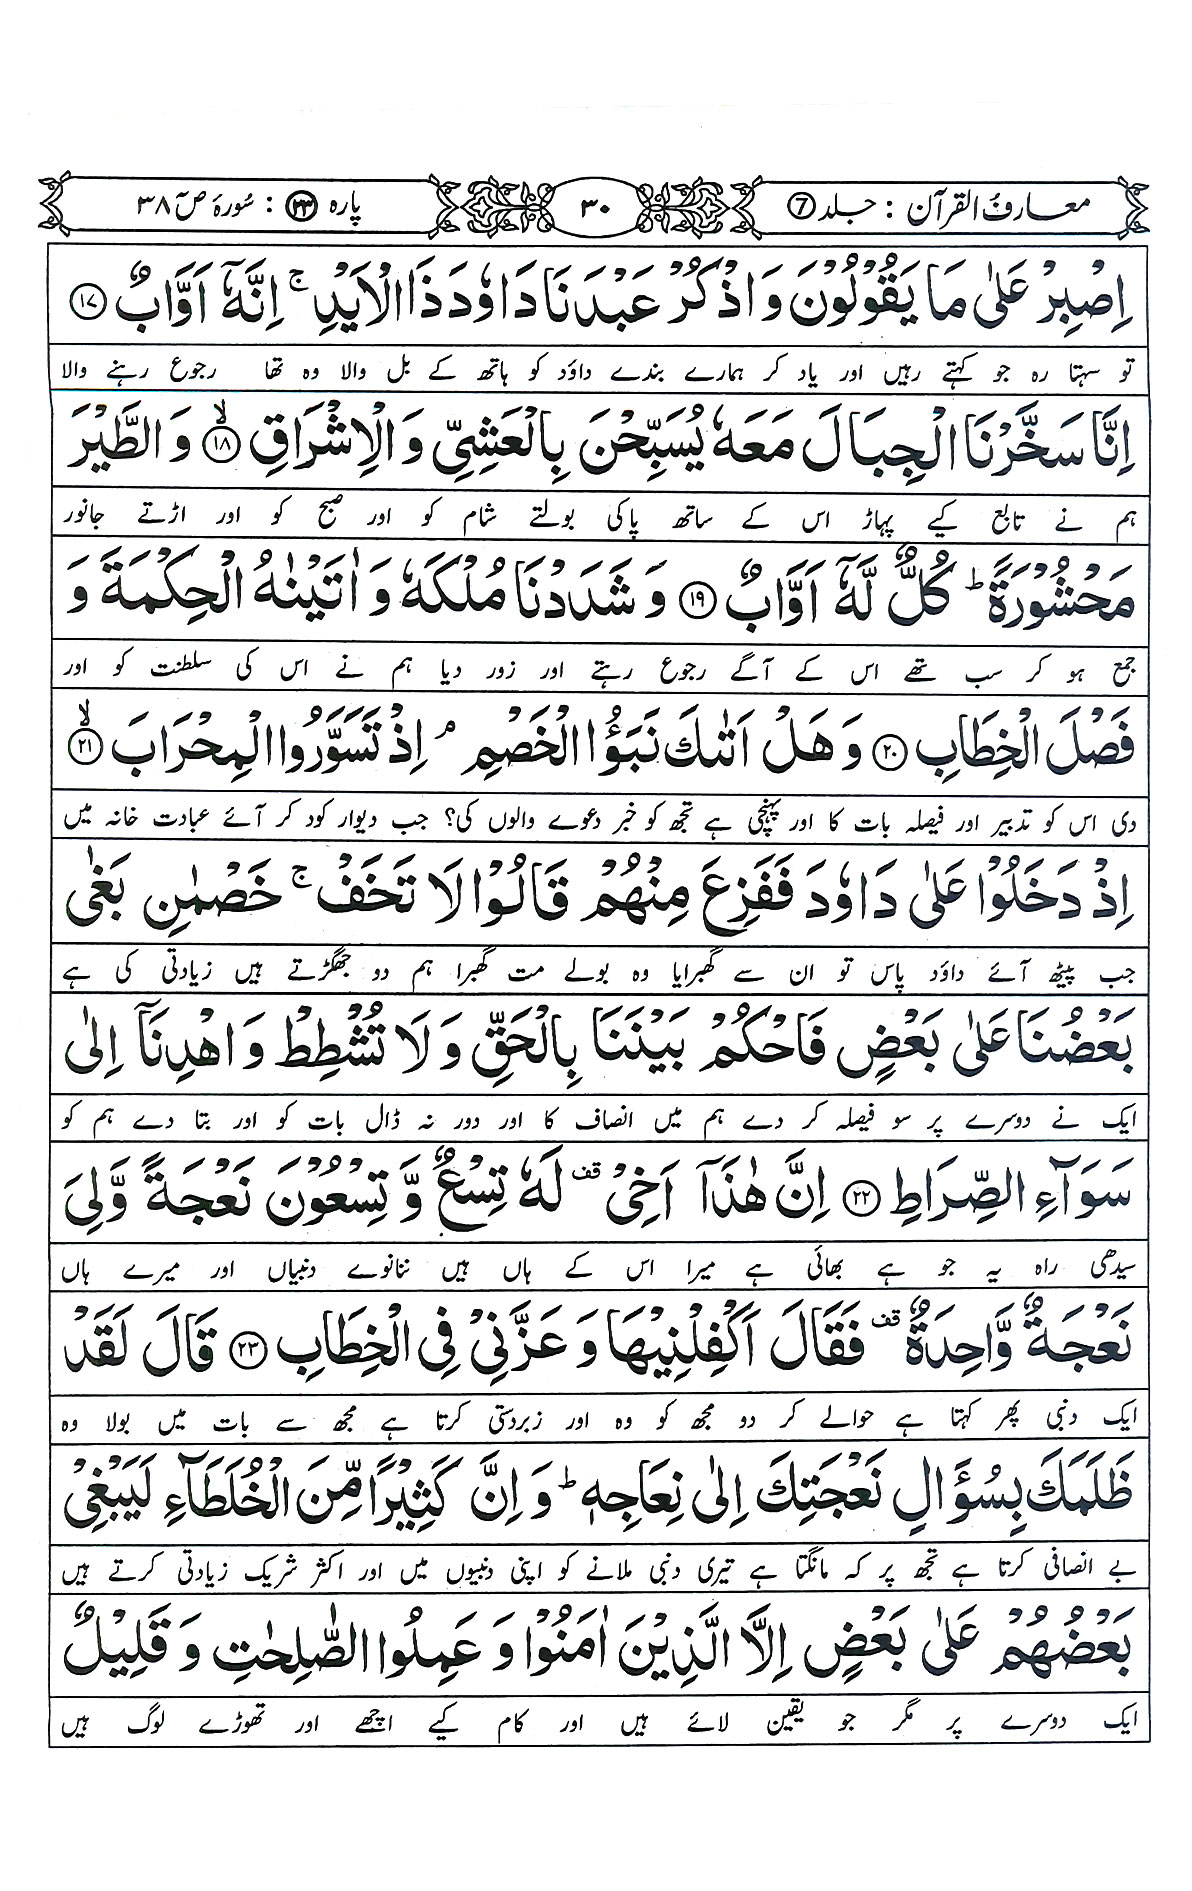 معارف القرآن : جلد ⑦
۳۰
پارہ ۲۳ : سُورۂ صٓ ۳۸
اِصْبِرْ عَلٰی مَا یَقُوْلُوْنَ وَ اذْكُرْ عَبْدَنَا دَاوٗدَ ذَا الْاَیْدِ ۚ اِنَّهٗۤ اَوَّابٌ ﴿۱۷﴾
تو سہتا رہ جو کہتے رہیں اور یاد کر ہمارے بندے داؤد کو ہاتھ کے بل والا وہ تھا رجوع رہنے والا
اِنَّا سَخَّرْنَا الْجِبَالَ مَعَهٗ یُسَبِّحْنَ بِالْعَشِیِّ وَ الْاِشْرَاقِ ﴿ۙ۱۸﴾ وَ الطَّیْرَ
ہم نے تابع کیے پہاڑ اس کے ساتھ پاکی بولتے شام کو اور صبح کو اور اڑتے جانور
مَحْشُوْرَةً ؕ كُلٌّ لَّهٗۤ اَوَّابٌ ﴿۱۹﴾ وَ شَدَدْنَا مُلْكَهٗ وَ اٰتَیْنٰهُ الْحِكْمَةَ وَ
جمع ہو کر سب تھے اس کے آگے رجوع رہتے اور زور دیا ہم نے اس کی سلطنت کو اور
فَصْلَ الْخِطَابِ ﴿۲۰﴾ وَ هَلْ اَتٰىكَ نَبَؤُا الْخَصْمِ ۘ اِذْ تَسَوَّرُوا الْمِحْرَابَ ﴿ۙ۲۱﴾
دی اس کو تدبیر اور فیصلہ بات کا اور پہنچی ہے تجھ کو خبر دعوے والوں کی؟ جب دیوار کود کر آئے عبادت خانہ میں
اِذْ دَخَلُوْا عَلٰی دَاوٗدَ فَفَزِعَ مِنْهُمْ قَالُوْا لَا تَخَفْ ۚ خَصْمٰنِ بَغٰی
جب پیٹھ آئے داؤد پاس تو ان سے گھبرایا وہ بولے مت گھبرا ہم دو جھگڑتے ہیں زیادتی کی ہے
بَعْضُنَا عَلٰی بَعْضٍ فَاحْكُمْ بَیْنَنَا بِالْحَقِّ وَ لَا تُشْطِطْ وَ اهْدِنَاۤ اِلٰی
ایک نے دوسرے پر سو فیصلہ کر دے ہم میں انصاف کا اور دور نہ ڈال بات کو اور بتا دے ہم کو
سَوَآءِ الصِّرَاطِ ﴿۲۲﴾ اِنَّ هٰذَاۤ اَخِیْ ۫ لَهٗ تِسْعٌ وَّ تِسْعُوْنَ نَعْجَةً وَّلِیَ
سیدھی راہ یہ جو ہے بھائی ہے میرا اس کے ہاں ہیں ننانوے دنبیاں اور میرے ہاں
نَعْجَةٌ وَّاحِدَةٌ ۫ فَقَالَ اَكْفِلْنِیْهَا وَ عَزَّنِیْ فِی الْخِطَابِ ﴿۲۳﴾ قَالَ لَقَدْ
ایک دنبی پھر کہتا ہے حوالے کر دو مجھ کو وہ اور زبردستی کرتا ہے مجھ سے بات میں بولا وہ
ظَلَمَكَ بِسُؤَالِ نَعْجَتِكَ اِلٰی نِعَاجِهٖ ؕ وَ اِنَّ كَثِیْرًا مِّنَ الْخُلَطَآءِ لَیَبْغِیْ
بے انصافی کرتا ہے تجھ پر کہ مانگتا ہے تیری دنبی ملانے کو اپنی دنبیوں میں اور اکثر شریک زیادتی کرتے ہیں
بَعْضُهُمْ عَلٰی بَعْضٍ اِلَّا الَّذِیْنَ اٰمَنُوْا وَ عَمِلُوا الصّٰلِحٰتِ وَ قَلِیْلٌ
ایک دوسرے پر مگر جو یقین لائے ہیں اور کام کیے اچھے اور تھوڑے لوگ ہیں